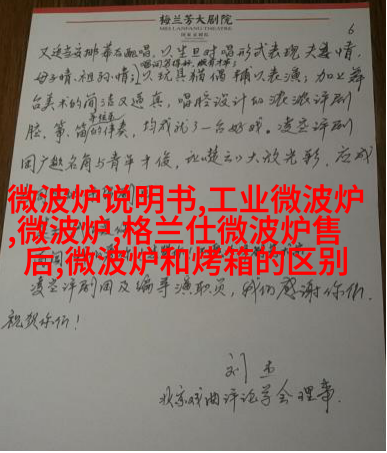 梅兰芳大剧院
MEI LANFANG THEATRE
国家京剧院
6
又适当安排幕后唱、以生旦对唱形式表现夫妻情、
母子情、祖孙情;以玩具偶辅以表演,加上舞
台美术的简洁又逼真,唱腔设计的浓浓评剧
腔,筝、笛的伴奏,均成就了一台好戏。凌空评剧
团广邀名角与青年才俊,让楚云大放光彩,应成
微波炉说明书,工业微波炉
,微波炉,格兰仕微波炉售
后,微波炉和烤箱的区别
凌空评剧团及编导演职员,我们感谢你们,
祝贺你们!
刘
北京戏曲评论学会理事.